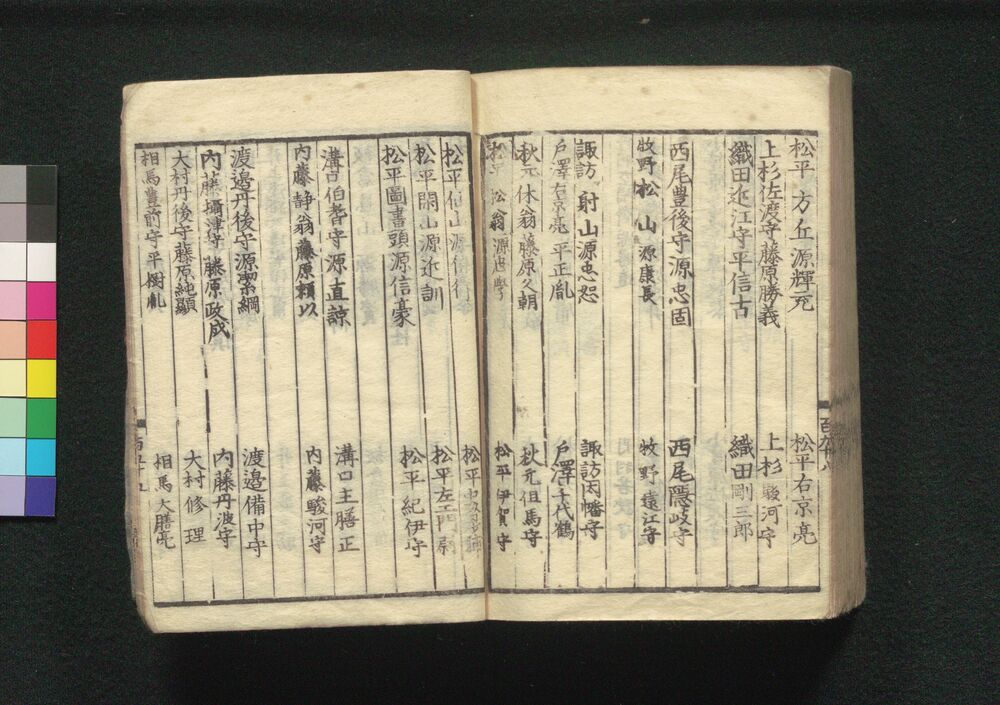 松平方丘源輝充　松平右京亮
上杉佐渡守藤原勝義　上杉駿河守
織田近江守平信古　織田剛三郎
西尾豊後守源忠固　西尾隠岐守
牧野松山源康長　牧野遠江守
諏訪射山源忠恕　諏訪因幡守
戸澤右京亮平正胤　戸澤千代鶴
秋元休翁藤原久朝　秋元但馬守
松平松翁源忠學　松平伊賀守
松平仙山源信行　松平
松平閑山源近訓　松平左エ門尉
松平圖書頭源信豪　松平紀伊守
溝口伯耆守源直諒　溝口主膳正
内藤静翁藤原頼以　内藤駿河守
渡邉丹後守源潔綱　渡邉備中守
内藤攝津守藤原政成　内藤丹波守
大村丹後守藤原純顯　大村修理
相馬豊前守平樹胤　相馬大膳亮